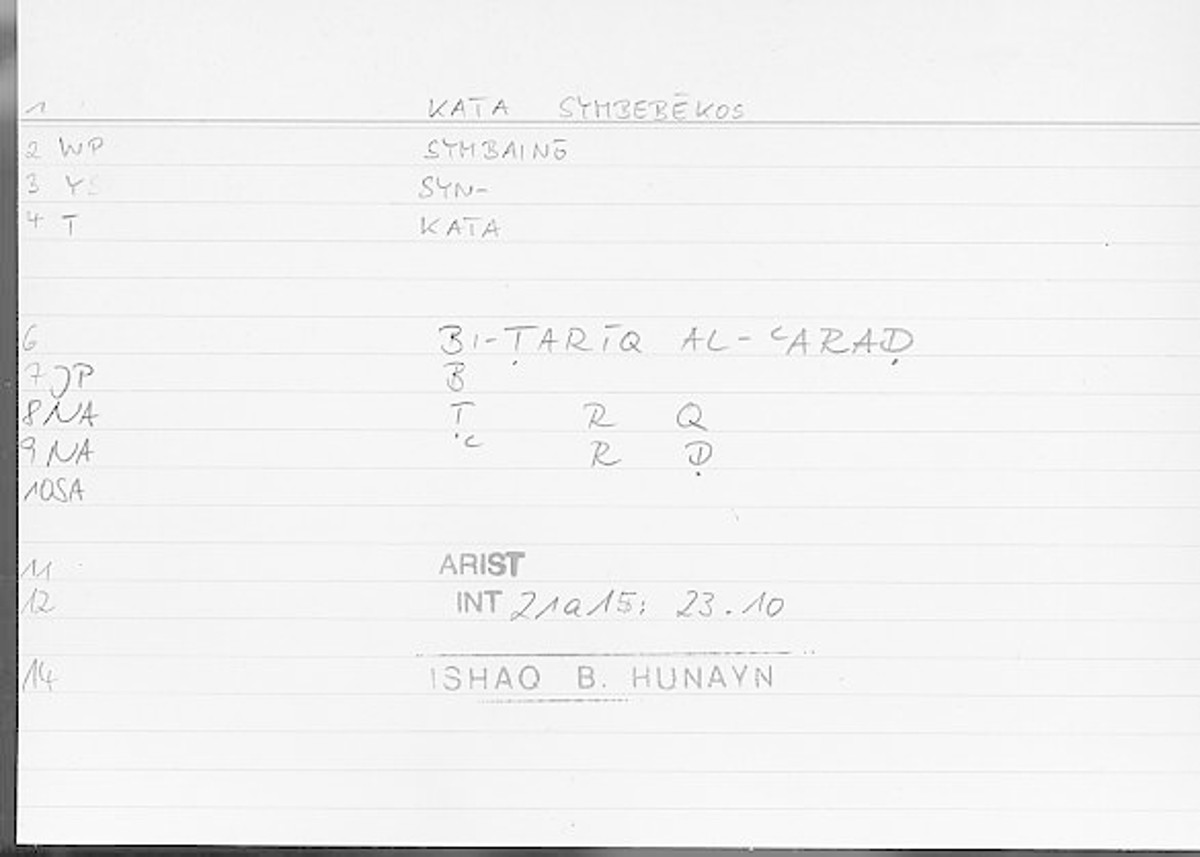 1 KATA SYMBEBĒKOS
2 WP SYMBAINŌ
3 YS SYN-
4 T KATA
6 BI-ṬARĪQ AL-ʿARAḌ
7 JP B
8 NA Ṭ R Q
9 NA ʿ R Ḍ
10 SA
11 ARIST
12 INT 21a15: 23.10
14 ISHAQ B. HUNAYN